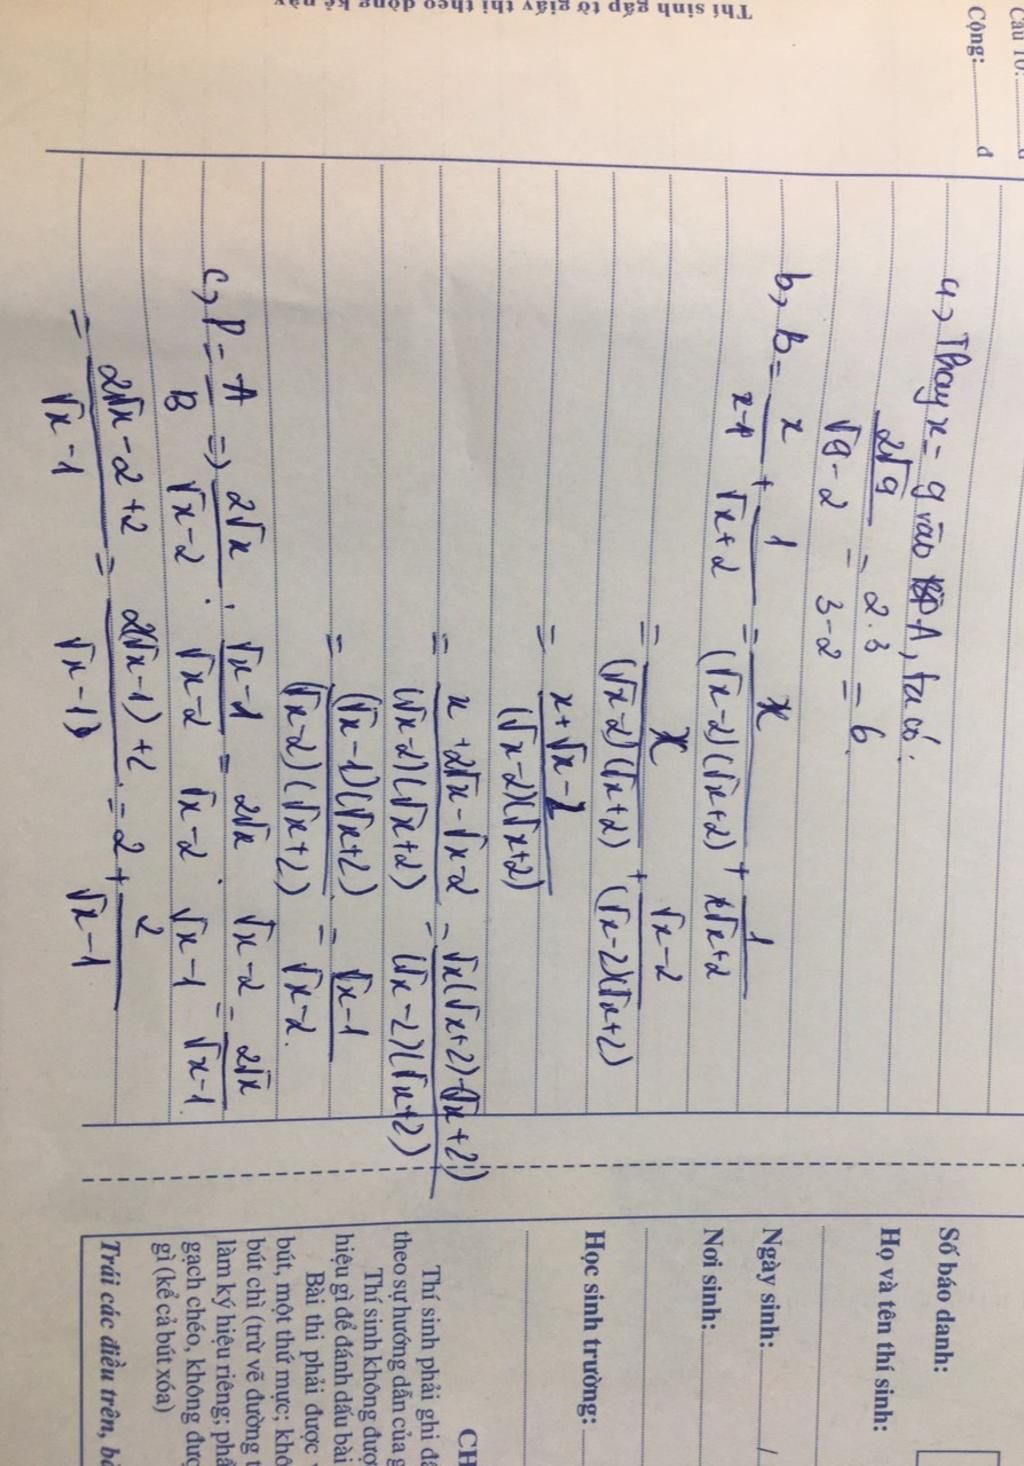 Câu 10:
Cộng:..............đ
Thí sinh gấp tờ giấy thi theo dòng kẻ này
a, Thay x = 9 vào A, ta có:
2√9 / √9 - 2 = 2.3 / 3-2 = 6
b, B = x / x-4 + 1 / √x+2 = x / (√x-2)(√x+2) + 1 / √x+2
= x / (√x-2)(√x+2) + √x-2 / (√x-2)(√x+2)
= x+√x-2 / (√x-2)(√x+2)
= x+2√x-√x-2 / (√x-2)(√x+2) = √x(√x+2)-(√x+2) / (√x-2)(√x+2)
= (√x-1)(√x+2) / (√x-2)(√x+2) = √x-1 / √x-2.
c, P = A / B => 2√x / √x-2 : √x-1 / √x-2 = 2√x / √x-2 . √x-2 / √x-1 = 2√x / √x-1.
= 2√x-2+2 / √x-1 = 2(√x-1)+2 / √x-1 = 2 + 2 / √x-1
Số báo danh:
Họ và tên thí sinh:
Ngày sinh:.............../
Nơi sinh:...............
Học sinh trường:.......
CH
Thí sinh phải ghi đầ
theo sự hướng dẫn của g
Thí sinh không đượ
hiệu gì để đánh dấu bài
Bài thi phải được
bút, một thứ mực; khô
bút chì (trừ vẽ đường t
làm ký hiệu riêng; phầ
gạch chéo, không đượ
gì (kể cả bút xóa)
Trái các điều trên, bà